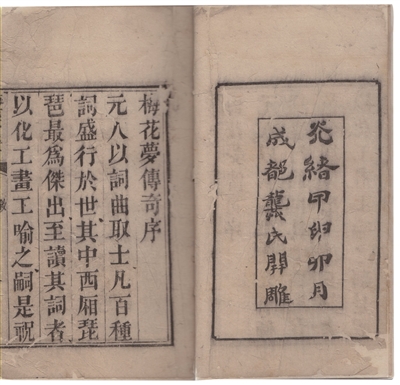 光緒甲卯月
成都龔氏開雕
梅花夢傳奇序
元人以詞曲取士凡百種
詞盛行於世其中西廂琵
琶最爲傑出至讀其詞者
以化工畫工喻之嗣是